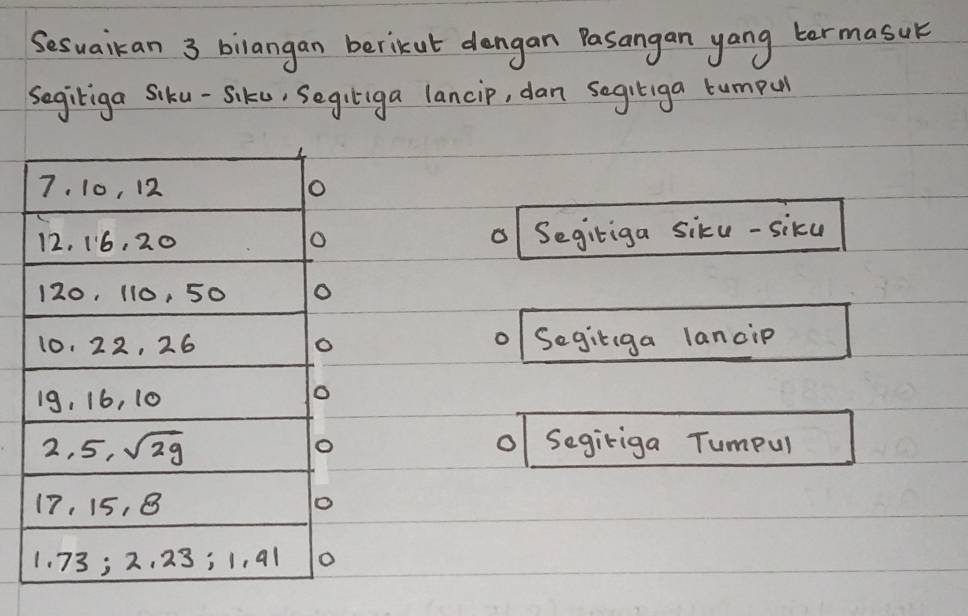 Sesuaikan 3 bilangan berikut dengan Pasangan yang termasuk
Segitiga Siku-Siku, Segitiga lancip, dan Segitiga tumpul
7, 10, 12
12, 16, 20
Segitiga siku-siku
120, 110, 50
10, 22, 26
Segitiga lancip
19, 16, 10
2, 5, √29
Segitiga Tumpul
17, 15, 8
1.73; 2.23; 1,41